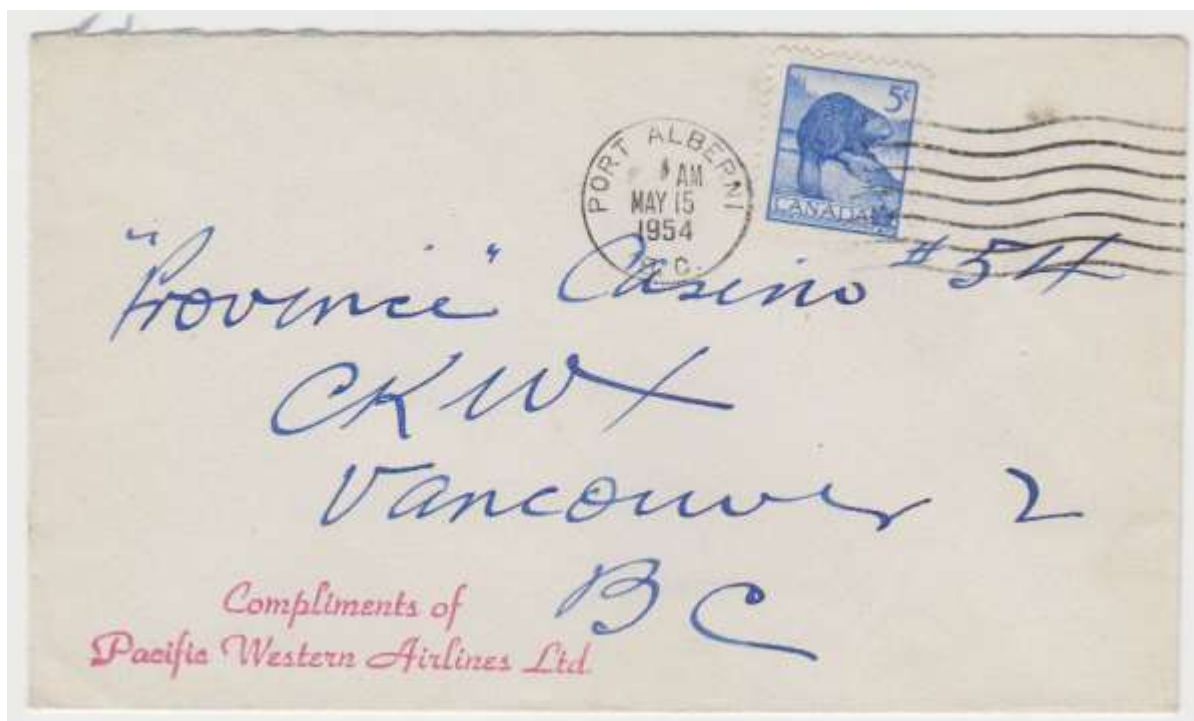 5¢
CANADA
PORT ALBERNI
AM
MAY 15
1954
B.C.
"Province" Casino #54
CKWX
Vancouver 2
BC
Compliments of
Pacific Western Airlines Ltd.